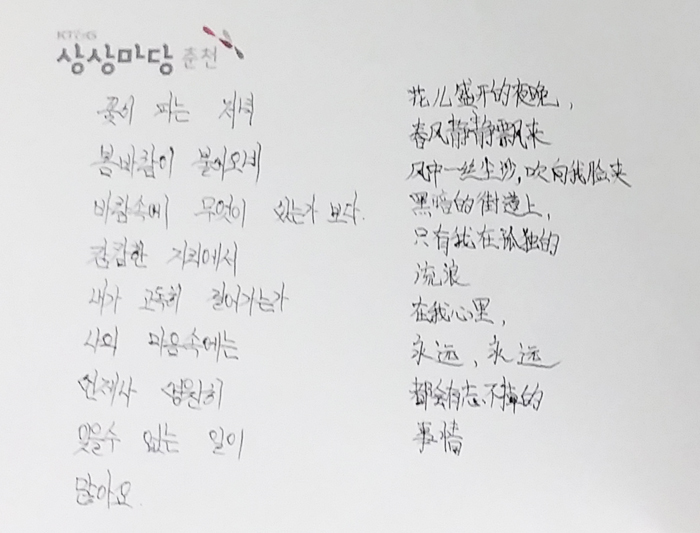 KT&G
상상마당 춘천
꽃이 피는 저녁
봄바람이 불어오네
바람속에 무엇이 있는가 보다.
컴컴한 거리에서
내가 고독히 걸어가는가
나의 마음속에는
언제나 영원히
잊을수 없는 일이
많아요.
花儿盛开的夜晚，
春风静静飘来
风中一丝尘沙，吹向我脸来
黑暗的街道上，
只有我在孤独的
流浪
在我心里，
永远，永远
都会有忘不掉的
事情